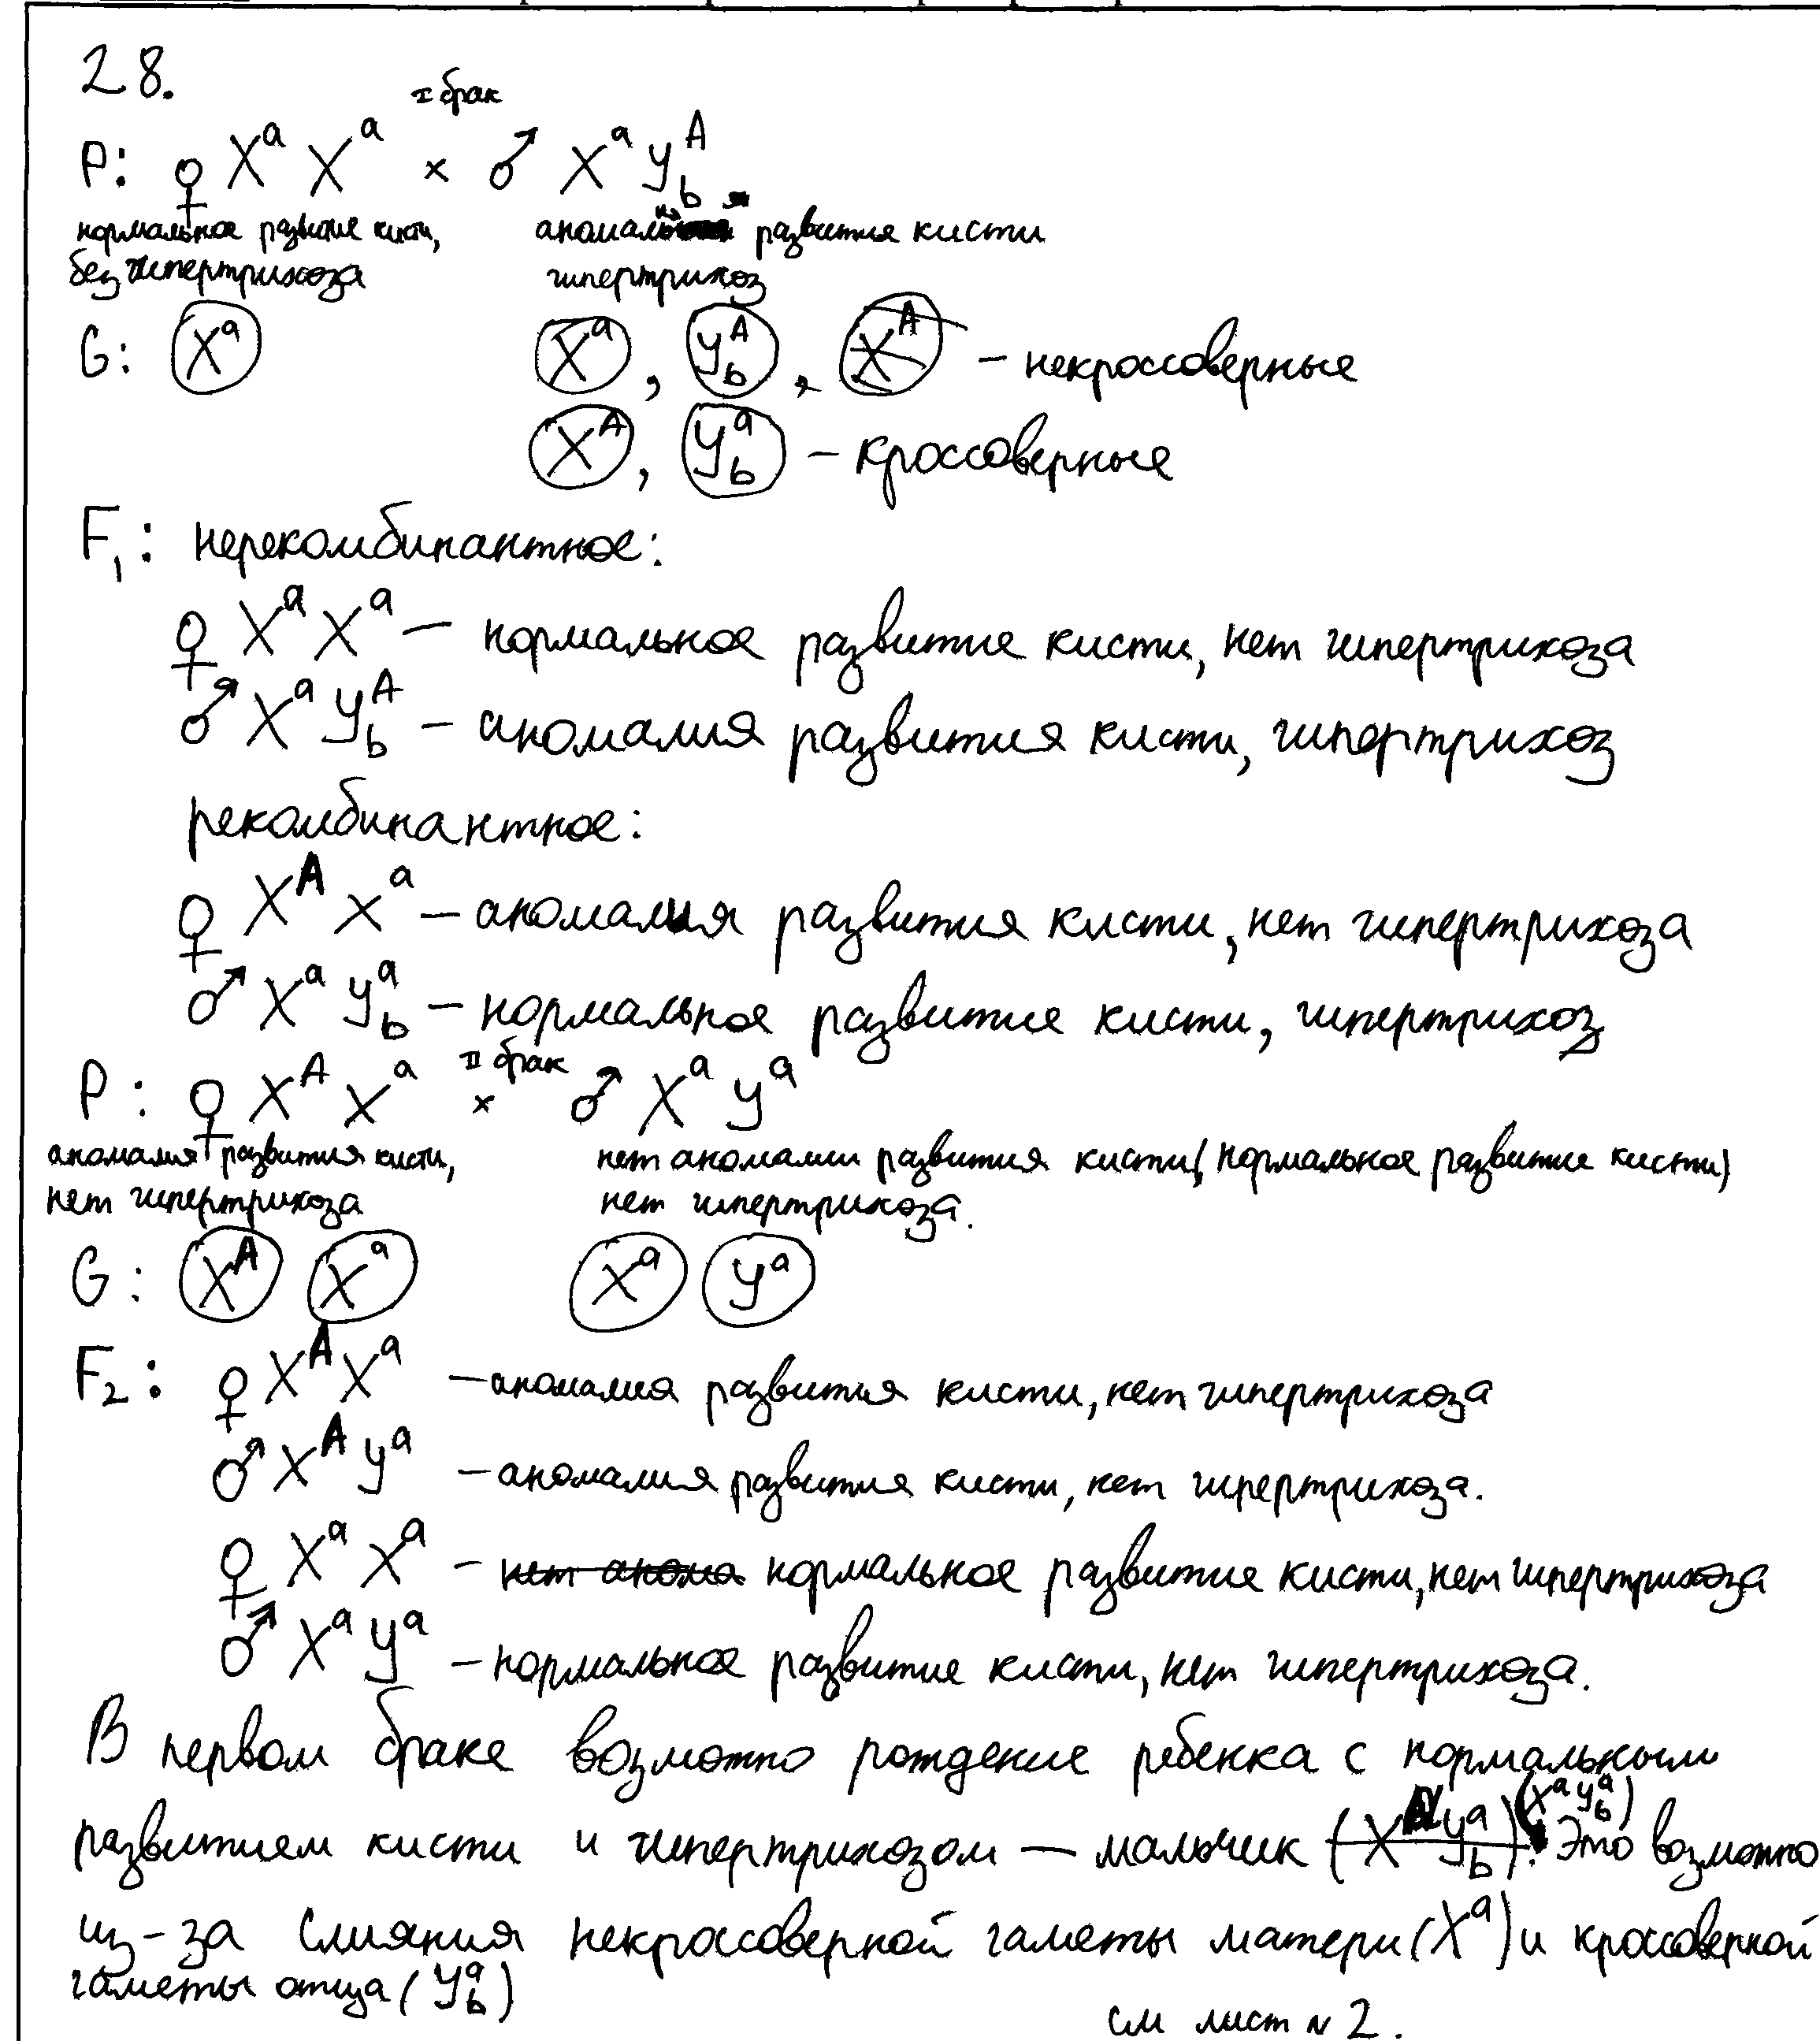 28.
I брак
P: ♀ X^a X^a × ♂ X^a y_b^A
нормальное развитие кисти, аномалия развития кисти
без гипертрихоза гипертрихоз
G: X^a X^a, y_b^A, X^A – некроссоверные
X^A, y_b^a – кроссоверные
F₁: нерекомбинантное:
♀ X^a X^a – нормальное развитие кисти, нет гипертрихоза
♂ X^a y_b^A – аномалия развития кисти, гипертрихоз
рекомбинантное:
♀ X^A X^a – аномалия развития кисти, нет гипертрихоза
♂ X^a y_b^a – нормальное развитие кисти, гипертрихоз
II брак
P: ♀ X^A X^a × ♂ X^a y^a
аномалия развития кисти, нет аномалии развития кисти (нормальное развитие кисти)
нет гипертрихоза нет гипертрихоза.
G: X^A X^a X^a y^a
F₂: ♀ X^A X^a – аномалия развития кисти, нет гипертрихоза
♂ X^A y^a – аномалия развития кисти, нет гипертрихоза.
♀ X^a X^a – нет анома нормальное развитие кисти, нет гипертрихоза
♂ X^a y^a – нормальное развитие кисти, нет гипертрихоза.
В первом браке возможно рождение ребенка с нормальным
развитием кисти и гипертрихозом – мальчик (X^a y_b^a). Это возможно
из-за слияния некроссоверной гаметы матери (X^a) и кроссоверной
гаметы отца (y_b^a)
см лист n 2.